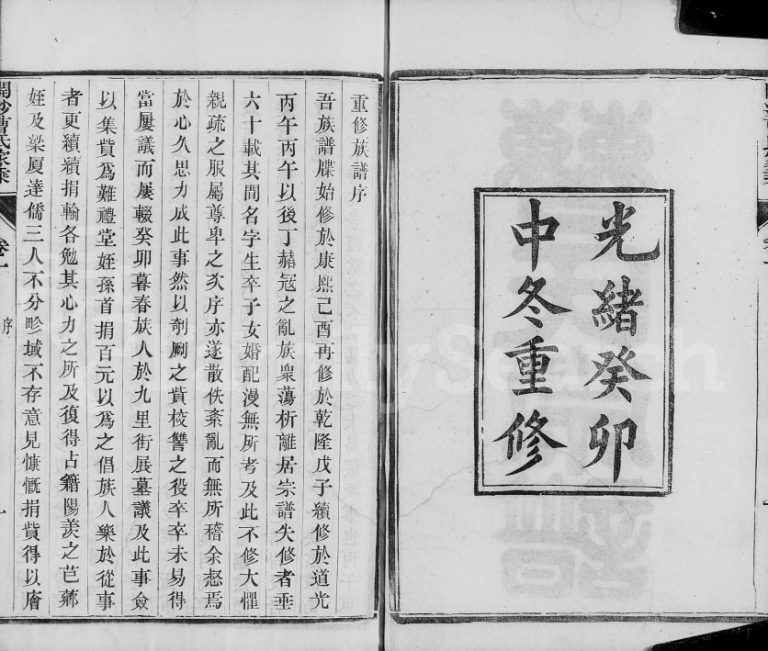 光緒癸卯
中冬重修
重修族譜序
吾族譜牒始修於康熙己酉再修於乾隆戊子續修於道光
丙午丙午以後丁赭冦之亂族衆蕩析離居宗譜失修者垂
六十載其間名字生卒子女婚配漫無所考及此不修大懼
親疏之服屬尊卑之次序亦遂散佚紊亂而無所稽余惄焉
於心久思力成此事然以剞劂之貲校讐之役卒卒未易得
當屢議而屢輟癸卯暮春族人於九里街展墓議及此事僉
以集貲爲難禮堂姪孫首捐百元以爲之倡族人樂於從事
者更續續捐輸各勉其心力之所及復得占籍陽羡之芑薌
姪及梁厦達儒三人不分畛域不存意見慷慨捐貲得以庤
曹氏家乘
卷一
序
一